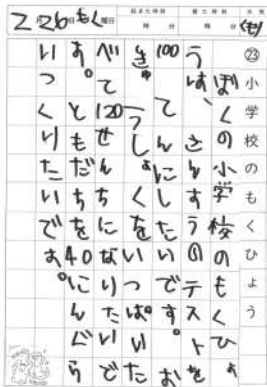 2月26日もく曜日
起きた時刻 時 分
寝た時刻 時 分
天気
くもり
㉓小学校のもくひょう
ぼくの小学校のもくひょ
うは、さんすうのテストを
100てんにしたいです。お
きゅうしょくをいっぱいた
べて120せんちになりたいで
す。ともだちを40にんぐら
いつくりたいです。